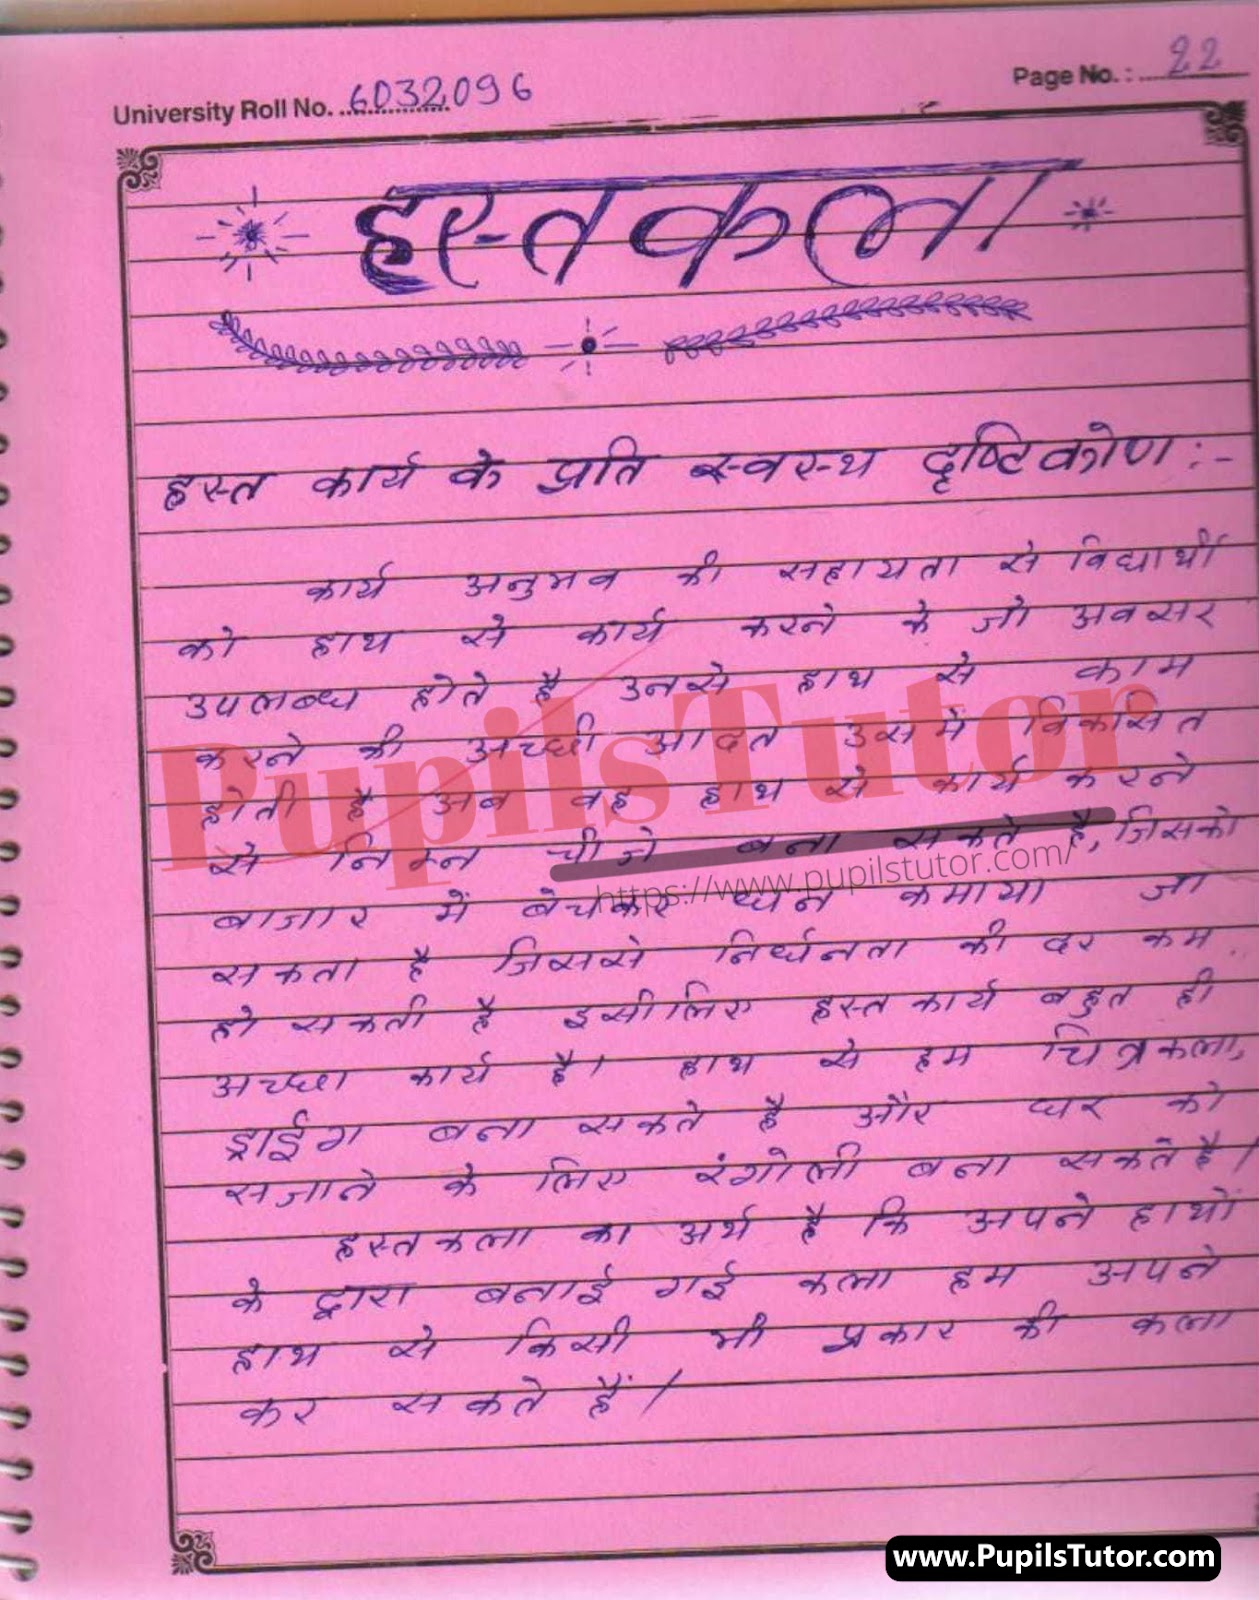 University Roll No. 6032096
Page No. : 22
हस्तकला
हस्त कार्य के प्रति स्वस्थ दृष्टिकोण :-
कार्य अनुभव की सहायता से विद्यार्थी
को हाथ से कार्य करने के जो अवसर
उपलब्ध होते है उनसे हाथ से काम
करने की अच्छी आदत उसमें विकसित
होती है अब वह हाथ से कार्य करने
से निम्न चीजे बना सकते है, जिसको
बाजार में बेचकर धन कमाया जा
सकता है जिससे निर्धनता की दर कम
हो सकती है इसीलिए हस्त कार्य बहुत ही
अच्छा कार्य है। हाथ से हम चित्रकला,
ड्राईंग बना सकते है और घर को
सजाने के लिए रंगोली बना सकते है।
हस्तकला का अर्थ है कि अपने हाथों
के द्वारा बनाई गई कला हम अपने
हाथ से किसी भी प्रकार की कला
कर सकते हैं।
PupilsTutor
https://www.pupilstutor.com/
www.PupilsTutor.com